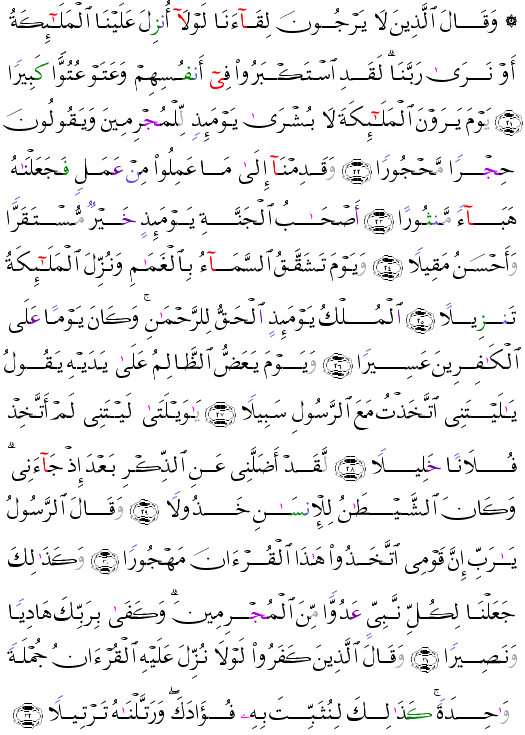 ۞ وَقَالَ ٱلَّذِينَ لَا يَرْجُونَ لِقَآءَنَا لَوْلَآ أُنزِلَ عَلَيْنَا ٱلْمَلَٰٓئِكَةُ
أَوْ نَرَىٰ رَبَّنَا ۗ لَقَدِ ٱسْتَكْبَرُوا۟ فِىٓ أَنفُسِهِمْ وَعَتَوْ عُتُوًّا كَبِيرًا
﴿٢١﴾ يَوْمَ يَرَوْنَ ٱلْمَلَٰٓئِكَةَ لَا بُشْرَىٰ يَوْمَئِذٍ لِّلْمُجْرِمِينَ وَيَقُولُونَ
حِجْرًا مَّحْجُورًا ﴿٢٢﴾ وَقَدِمْنَآ إِلَىٰ مَا عَمِلُوا۟ مِنْ عَمَلٍ فَجَعَلْنَٰهُ
هَبَآءً مَّنثُورًا ﴿٢٣﴾ أَصْحَٰبُ ٱلْجَنَّةِ يَوْمَئِذٍ خَيْرٌ مُّسْتَقَرًّا
وَأَحْسَنُ مَقِيلًا ﴿٢٤﴾ وَيَوْمَ تَشَقَّقُ ٱلسَّمَآءُ بِٱلْغَمَٰمِ وَنُزِّلَ ٱلْمَلَٰٓئِكَةُ
تَنزِيلًا ﴿٢٥﴾ ٱلْمُلْكُ يَوْمَئِذٍ ٱلْحَقُّ لِلرَّحْمَٰنِ ۚ وَكَانَ يَوْمًا عَلَى
ٱلْكَٰفِرِينَ عَسِيرًا ﴿٢٦﴾ وَيَوْمَ يَعَضُّ ٱلظَّالِمُ عَلَىٰ يَدَيْهِ يَقُولُ
يَٰلَيْتَنِى ٱتَّخَذْتُ مَعَ ٱلرَّسُولِ سَبِيلًا ﴿٢٧﴾ يَٰوَيْلَتَىٰ لَيْتَنِى لَمْ أَتَّخِذْ
فُلَانًا خَلِيلًا ﴿٢٨﴾ لَّقَدْ أَضَلَّنِى عَنِ ٱلذِّكْرِ بَعْدَ إِذْ جَآءَنِى ۗ
وَكَانَ ٱلشَّيْطَٰنُ لِلْإِنسَٰنِ خَذُولًا ﴿٢٩﴾ وَقَالَ ٱلرَّسُولُ
يَٰرَبِّ إِنَّ قَوْمِى ٱتَّخَذُوا۟ هَٰذَا ٱلْقُرْءَانَ مَهْجُورًا ﴿٣٠﴾ وَكَذَٰلِكَ
جَعَلْنَا لِكُلِّ نَبِىٍّ عَدُوًّا مِّنَ ٱلْمُجْرِمِينَ ۗ وَكَفَىٰ بِرَبِّكَ هَادِيًا
وَنَصِيرًا ﴿٣١﴾ وَقَالَ ٱلَّذِينَ كَفَرُوا۟ لَوْلَا نُزِّلَ عَلَيْهِ ٱلْقُرْءَانُ جُمْلَةً
وَٰحِدَةً ۚ كَذَٰلِكَ لِنُثَبِّتَ بِهِۦ فُؤَادَكَ ۖ وَرَتَّلْنَٰهُ تَرْتِيلًا ﴿٣٢﴾